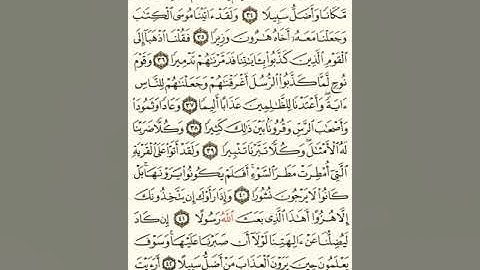 مَّكَانًا وَأَضَلُّ سَبِيلًا ٣٤ وَلَقَدْ ءَاتَيْنَا مُوسَى ٱلْكِتَٰبَ
وَجَعَلْنَا مَعَهُۥٓ أَخَاهُ هَٰرُونَ وَزِيرًا ٣٥ فَقُلْنَا ٱذْهَبَآ إِلَى
ٱلْقَوْمِ ٱلَّذِينَ كَذَّبُوا۟ بِـَٔايَٰتِنَا فَدَمَّرْنَٰهُمْ تَدْمِيرًا ٣٦ وَقَوْمَ
نُوحٍ لَّمَّا كَذَّبُوا۟ ٱلرُّسُلَ أَغْرَقْنَٰهُمْ وَجَعَلْنَٰهُمْ لِلنَّاسِ
ءَايَةً وَأَعْتَدْنَا لِلظَّٰلِمِينَ عَذَابًا أَلِيمًا ٣٧ وَعَادًا وَثَمُودَا۟
وَأَصْحَٰبَ ٱلرَّسِّ وَقُرُونًۢا بَيْنَ ذَٰلِكَ كَثِيرًا ٣٨ وَكُلًّا ضَرَبْنَا
لَهُ ٱلْأَمْثَٰلَ وَكُلًّا تَبَّرْنَا تَتْبِيرًا ٣٩ وَلَقَدْ أَتَوْا۟ عَلَى ٱلْقَرْيَةِ
ٱلَّتِىٓ أُمْطِرَتْ مَطَرَ ٱلسَّوْءِ أَفَلَمْ يَكُونُوا۟ يَرَوْنَهَا بَلْ
كَانُوا۟ لَا يَرْجُونَ نُشُورًا ٤٠ وَإِذَا رَأَوْكَ إِن يَتَّخِذُونَكَ
إِلَّا هُزُوًا أَهَٰذَا ٱلَّذِى بَعَثَ ٱللَّهُ رَسُولًا ٤١ إِن كَادَ
لَيُضِلُّنَا عَنْ ءَالِهَتِنَا لَوْلَآ أَن صَبَرْنَا عَلَيْهَا وَسَوْفَ
يَعْلَمُونَ حِينَ يَرَوْنَ ٱلْعَذَابَ مَنْ أَضَلُّ سَبِيلًا ٤٢ أَرَءَيْتَ